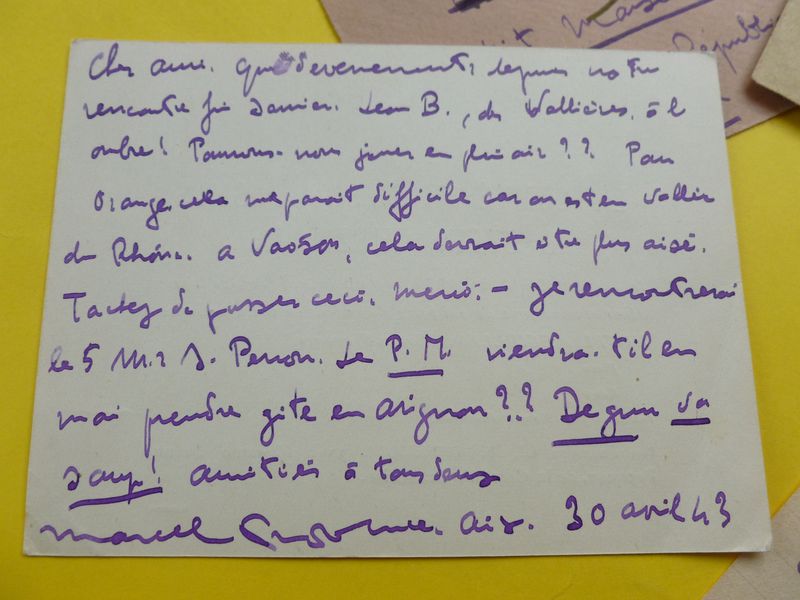 Cher ami. Que d'evenements depuis notre
rencontre fin Janvier. Leon B., des Vallières, à l
ombre! Pourrons-nous jouer en plein air?? Pour
Orange, cela me parait difficile car on est en vallée
du Rhône. a Vaison, cela devrait être plus aisé.
Tachez de passer ceci. merci. - je rencontrerai
le 5 Mr J. Perron. Le P. M. viendra-t il en
mai prendre gite en Avignon??
amitiés à tous deux
Marcel Provence. Aix. 30 avril 43
Républi